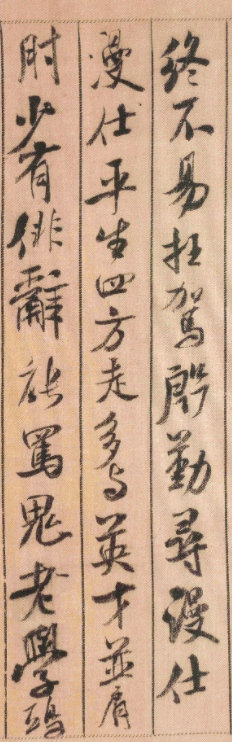 終不易枉駕殷勤尋漫仕
漫仕平生四方走多与英才並肩
肘少有俳辭能罵鬼老學鴟